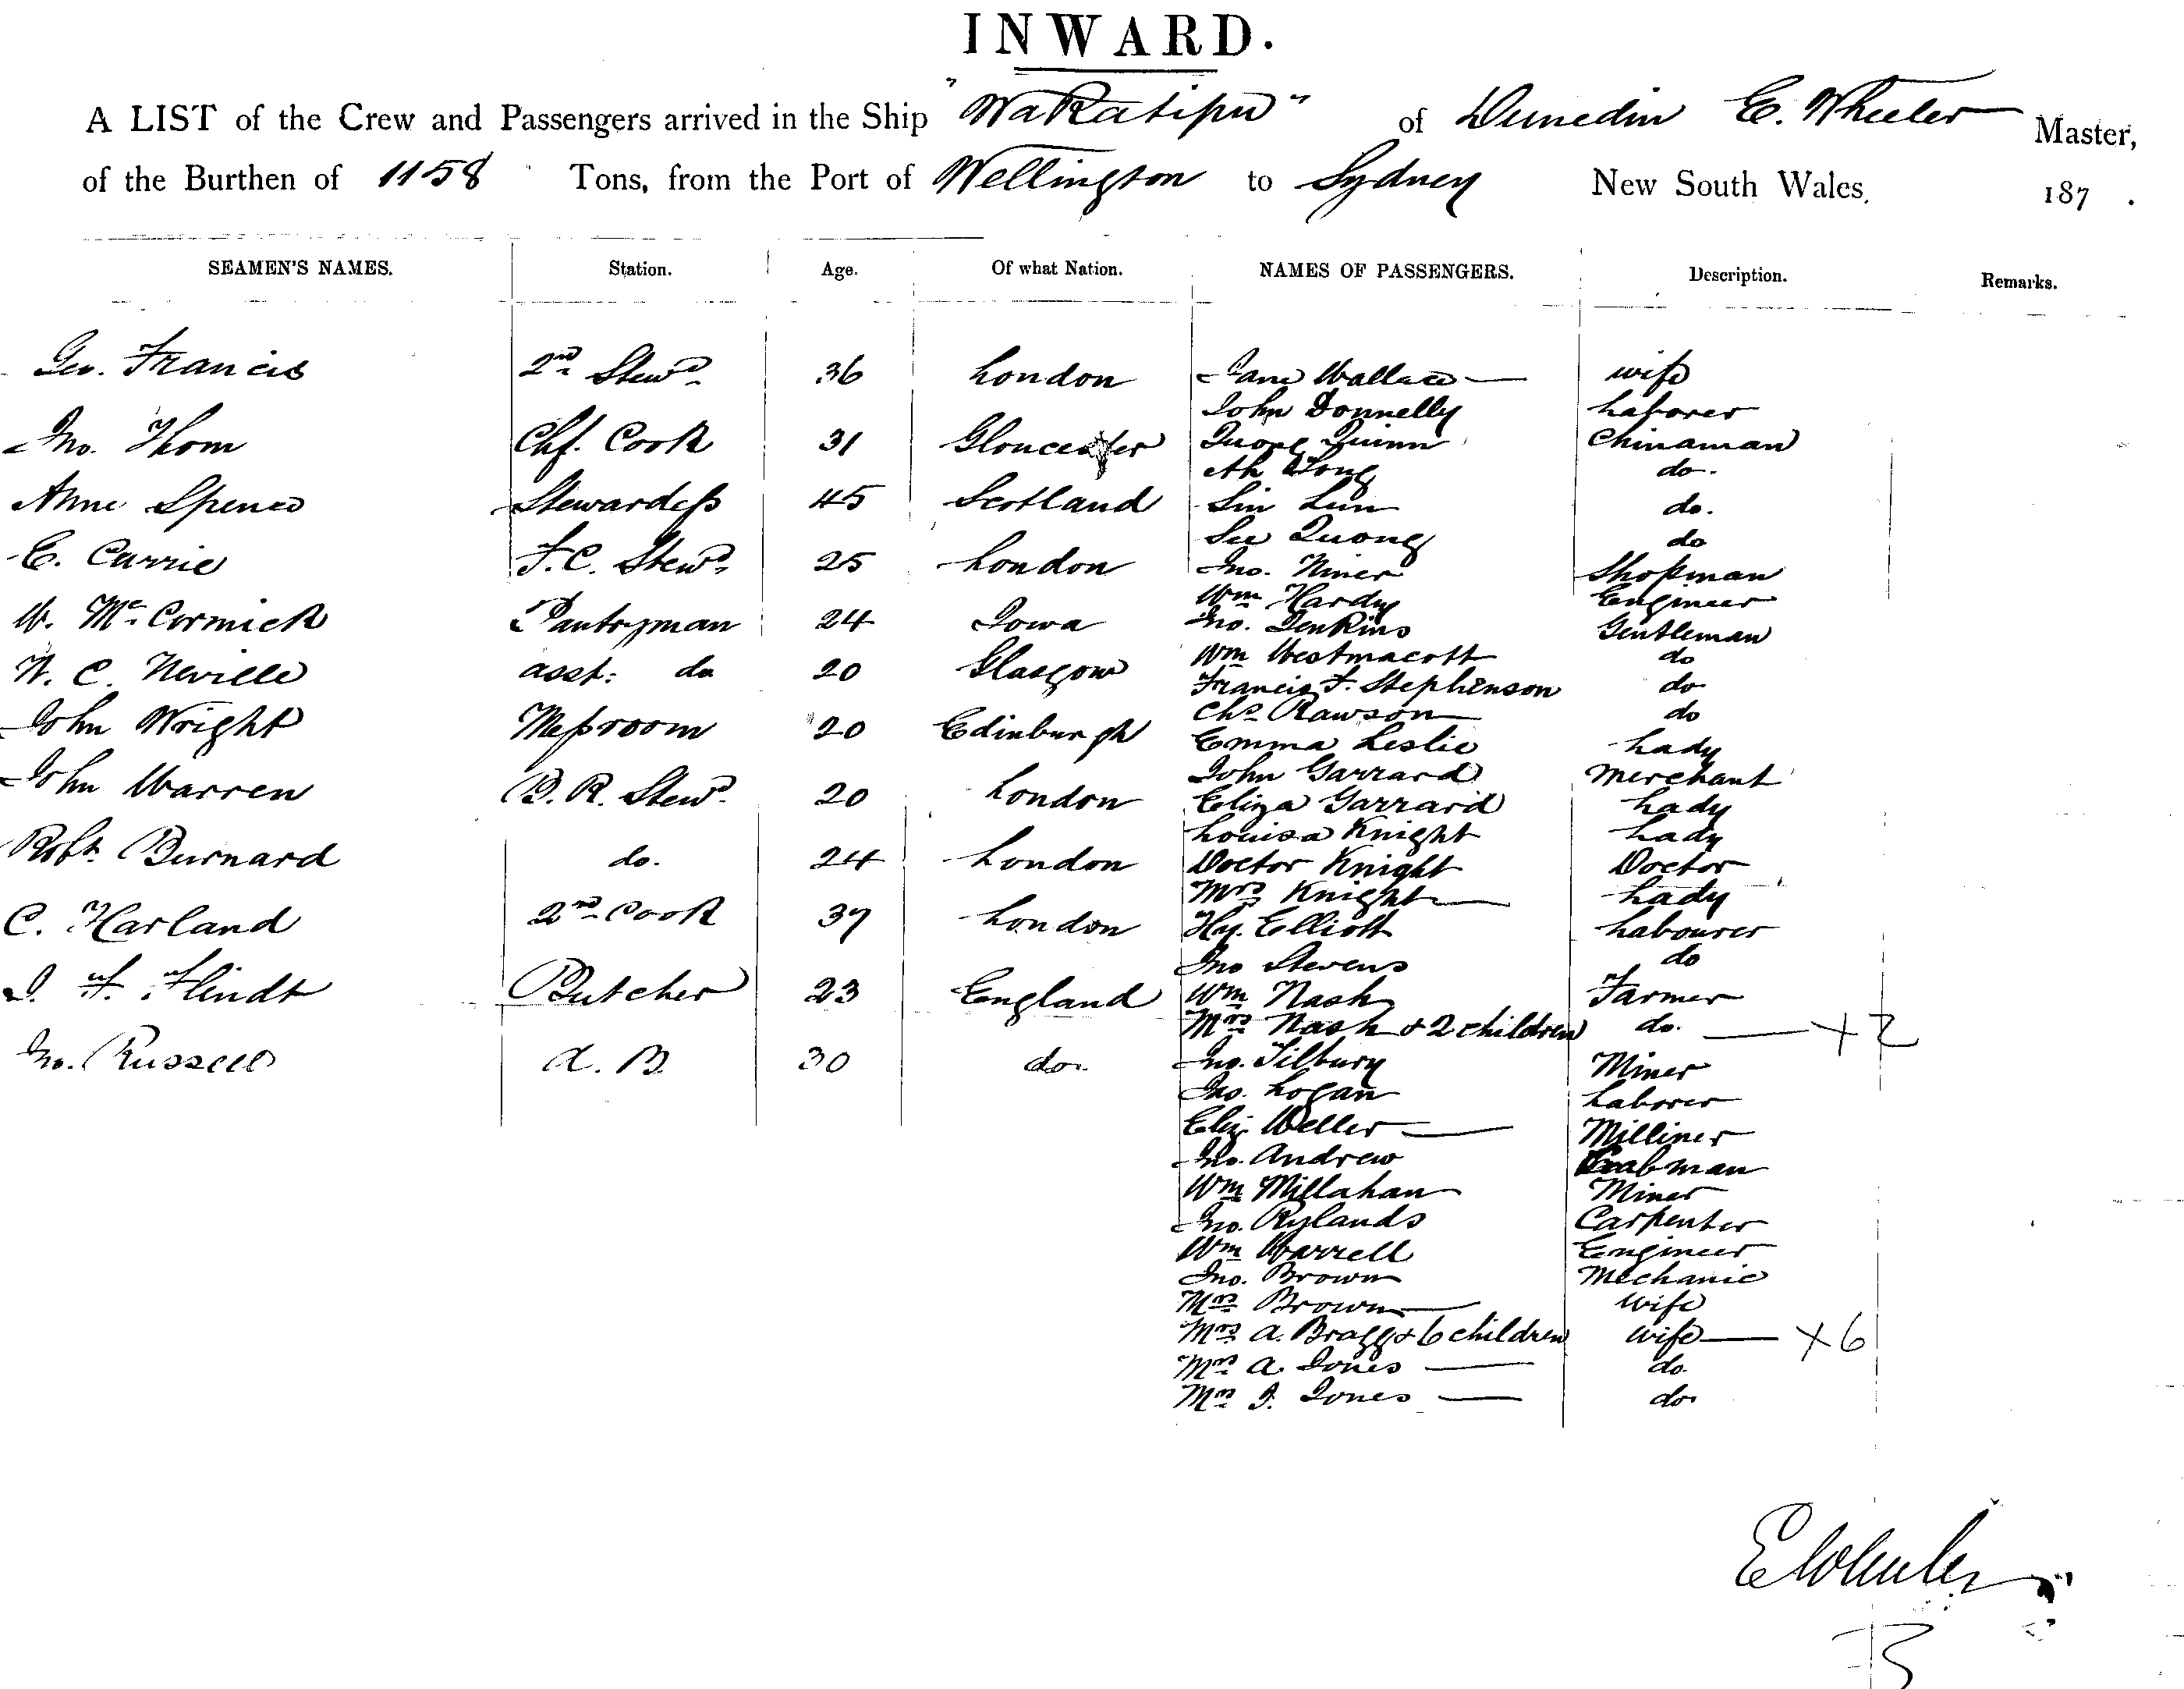 INWARD.
A LIST of the Crew and Passengers arrived in the Ship "Wakatipu" of Dunedin E. Wheeler Master,
of the Burthen of 1158 Tons, from the Port of Wellington to Sydney New South Wales, 187 .
SEAMEN'S NAMES. Station. Age. Of what Nation. NAMES OF PASSENGERS. Description. Remarks.
Geo. Francis 2nd Stewd. 36 London Jane Wallace — wife
John Donnelly Laborer
Jno. Thom Chf. Cook 31 Gloucester Quong Quinn Chinaman
Ah Long do.
Anne Spence Stewardess 45 Scotland Sin Lun do.
See Quong do
E. Currie F.C. Stewd. 25 London Jno. Niner Shopman
Wm Hardy Engineer
W. McCormick Pantryman 24 Iowa Jno. Jenkins Gentleman
Wm Westmacott do
N. C. Neville asst: do 20 Glasgow Francis F. Stephenson do
Chs. Rawson do
John Wright Messroom 20 Edinburgh Emma Leslie Lady
John Garrard Merchant
John Warren B. R. Stewd. 20 London Eliza Garrard Lady
Louisa Knight Lady
Robt. Burnard do. 24 London Doctor Knight Doctor
Mrs Knight — Lady
C. Harland 2nd Cook 37 London Hy. Elliott Labourer
Jno Stevens do
J. F. Flindt Butcher 23 England Wm Nash Farmer
Mrs Nash & 2 children do. — + 2
Jno. Russell A. B. 30 do. Jno. Tilbury Miner
Jno. Logan Laborer
Eliz. Weller — Milliner
Jno. Andrew Cabman
Wm Millahan Miner
Jno. Rylands Carpenter
Wm Warrell Engineer
Jno. Brown Mechanic
Mrs Brown — wife
Mrs A. Bragg & 6 children wife — + 6
Mrs A. Jones — do.
Mrs J. Jones — do.
E Wheeler